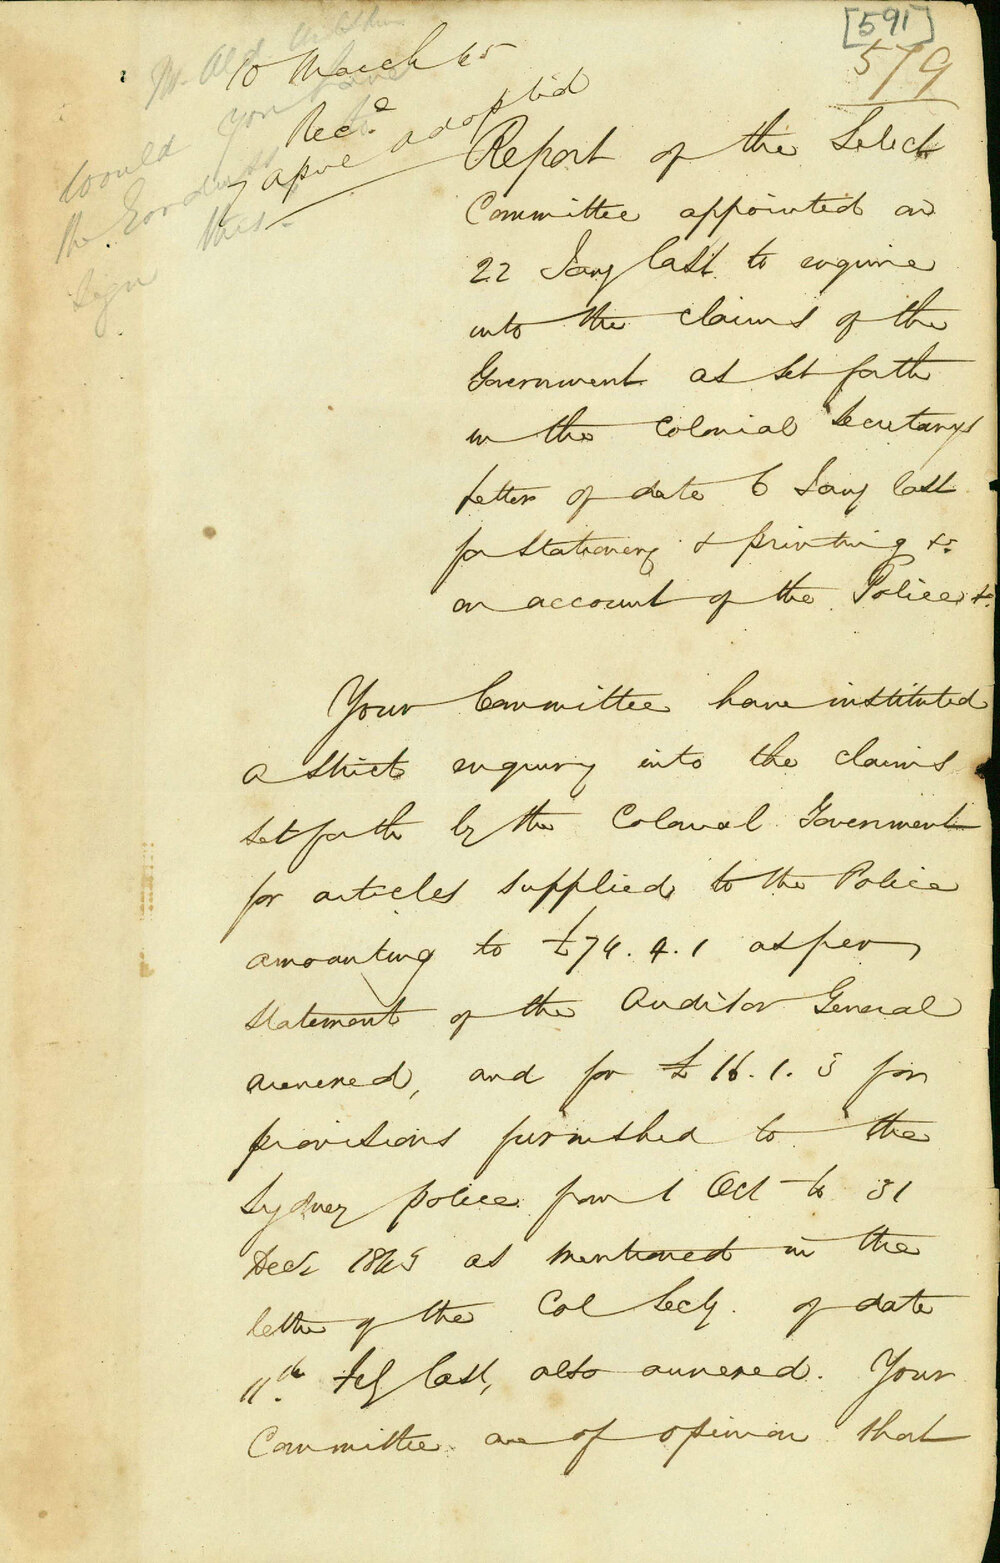 [591]
579
Mr. Ald.
10 March 45
would you have
Rec.d
& apve adopted
the
this.
sign
Report of the Select
Committee appointed on
22 Jany last to enquire
into the claims of the
Government as set forth
in the Colonial Secretarys
letter of date 6 Jany last
for Stationery & printing &c
on account of the Police &c.
Your Committee have instituted
a strict enquiry into the claims
set forth by the Colonial Government
for articles supplied to the Police
amounting to £74.4.1 as per
statement of the Auditor General
annexed, and for £16.1.3 for
provisions furnished to the
Sydney police from 1 Oct to 31
Decr 1843 as mentioned in the
letter of the Col Secy. of date
11th Feby last, also annexed. Your
Committee are of opinion that